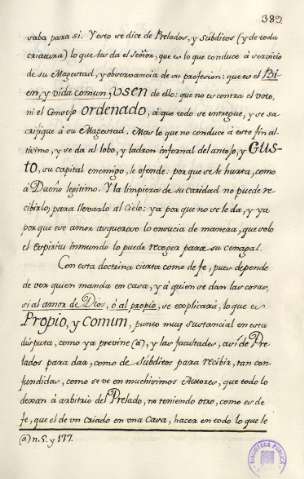 389
vaba para si. Y esto se dice de Prelados, y Subditos (y de toda
criatura) lo que les da el Señor, que es lo que conduce à servicio
de su Magestad, y observancia de su profesion: que es el Bi-
en, y vida comun, y Vsen de ello: que no es contra el voto,
ni el Consejo ordenado, à que todo se entregue, y se sa-
crifique à su Magestad. Mas lo que no conduce à este fin al-
tisimo, y se da al lobo, y ladron infernal del antojo, y Gus-
to, su capital enemigo, le ofende: por que se le hurta, como
à Dueño legitimo. Y la limpieza de su caridad no puede re-
cibirlo, para llevarlo al Cielo: ya por que no se le da, y ya
por que ese amor asqueroso lo ensucia de manera, que solo
el espiritu inmundo lo puede recoger para su cenagal.
Con esta doctrina, cierta como de fe, pues depende
de ver quien manda en casa, y à quien se dan las cosas,
si al amor de Dios, ò al propio, se explicarà, lo que es
Propio, y comun, punto muy sustancial en esta
disputa, como ya previne (a), y las facultades, asi de Pre-
lados para dar, como de Subditos para recibir, tan con-
fundidas, como se ve en muchisimos Autores, que todo lo
dexan à arbitrio del Prelado, no teniendo otro, como es de
fe, que el de un criado en una Casa, hacer en todo lo que le
(a) n. 5. y 177.